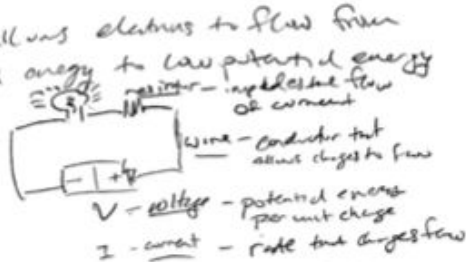 allows electrons to flow from
energy to low potential energy
resistor - impedes the flow
of current
wire - conductor that
allows charges to flow
- +
V - voltage - potential energy
per unit charge
I - current - rate that charges flow